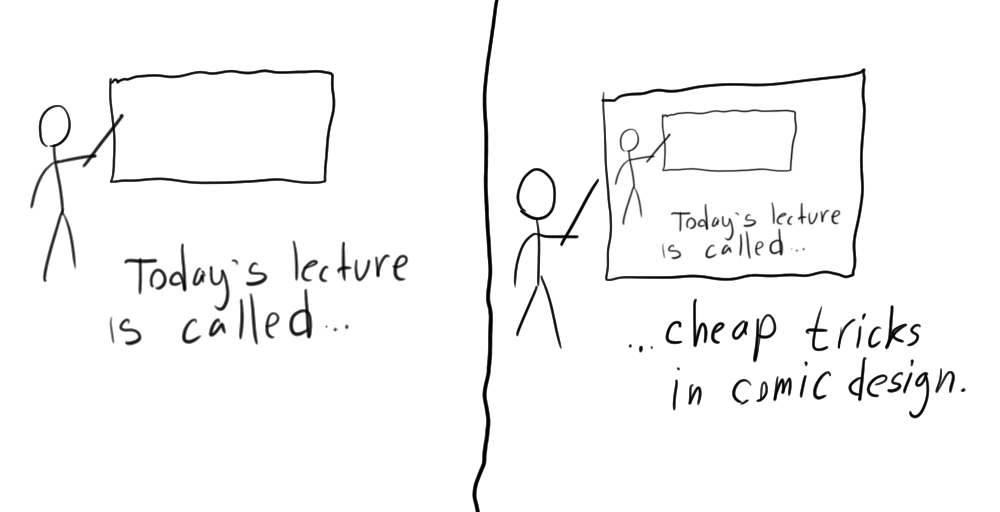 Today's lecture
is called...
Today's lecture
is called...
...cheap tricks
in comic design.